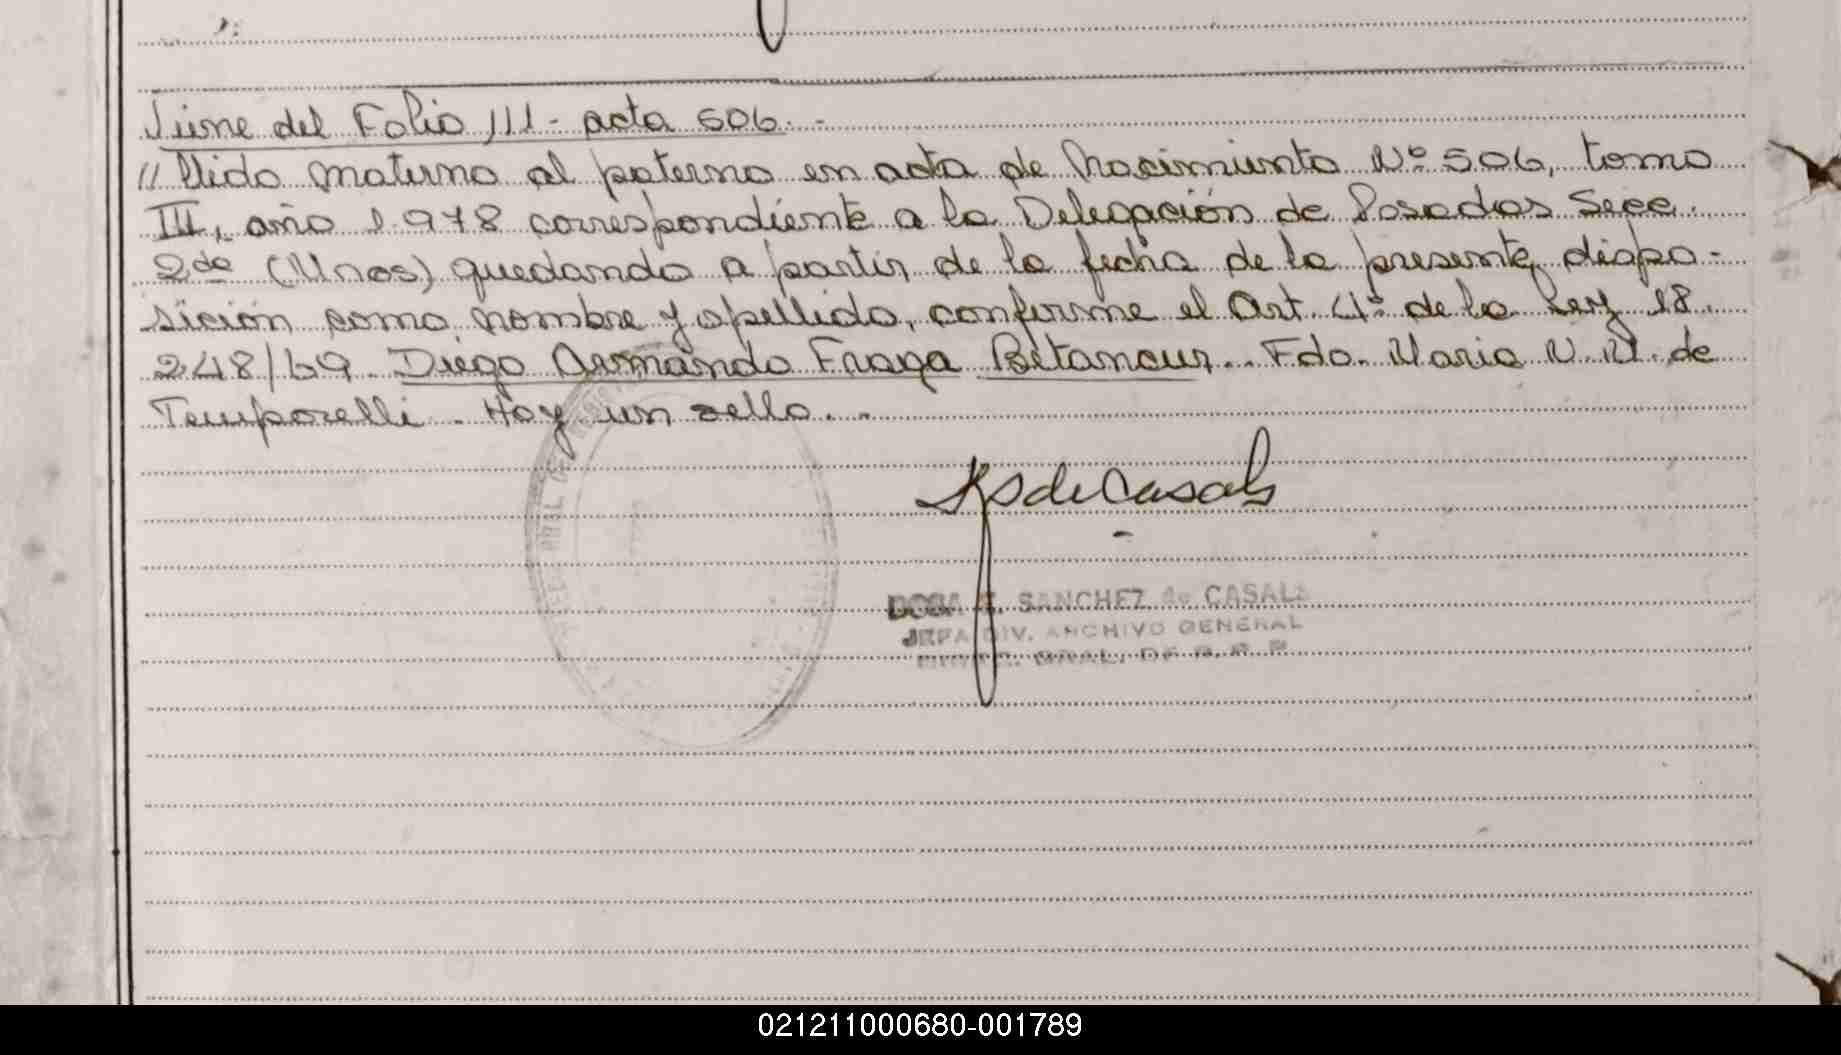 Viene del Folio 111 - acta 506. -
// llido materno al paterno en acta de Nacimiento Nº 506, tomo
III, año 1.978 correspondiente a la Delegación de Posadas Secc.
2da (Mnes) quedando a partir de la fecha de la presente dispo-
sición como nombre y apellido, conforme el Art. 4º de la Ley 18.
248/69. Diego Armando Fraga Betancur. - Fdo. Maria N. N. de
Temporelli. - Hay un sello. -
de Casals
SANCHEZ de CASALS
JEFA DIV. ARCHIVO GENERAL
GRAL. DE
021211000680-001789